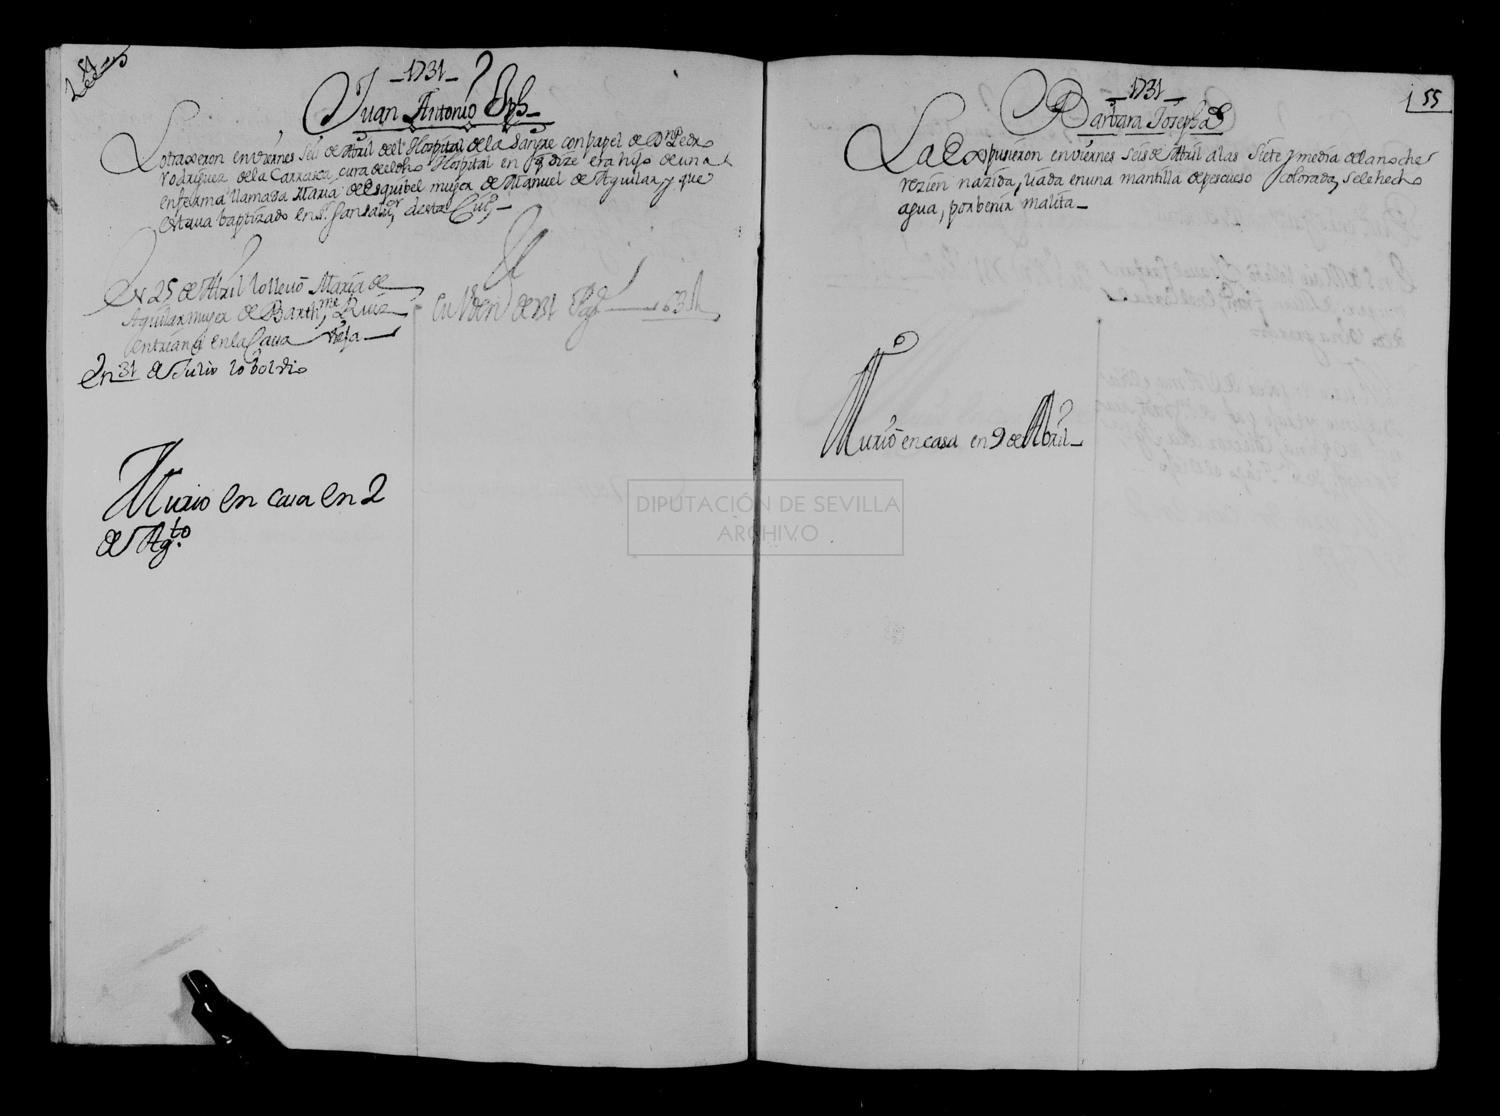 54
-1731-
Juan Antonio Jph-
Lo traxeron en viernes seis de Abril del Hospital de la Sangre con papel de Dn Pedro
rodriguez de la Carrasca, cura de dcho Hospital en q dize era hijo de una
enferma llamada Maria de Esquibel muger de Manuel de Aguilar, y que
estava baptizado en Sn Sanador desta Ciud-
En 25 de Abril lo llevó Maria de
Aguilar muger de Barthme Ruiz
en triana en la Cava Vieja
En 31 de Julio lo bolvio
Murio en casa en 2
de Agto
en de 731 Pag 63
1731-
55
Barbara Josepha
La Expusieron en viernes seis de Abril a las Siete y media de la noche
rezien nazida, liada en una mantilla de pescueso colorada, se le hecho
agua, por benir malita-
Murió en casa en 9 de Abril-
DIPUTACIÓN DE SEVILLA
ARCHIVO